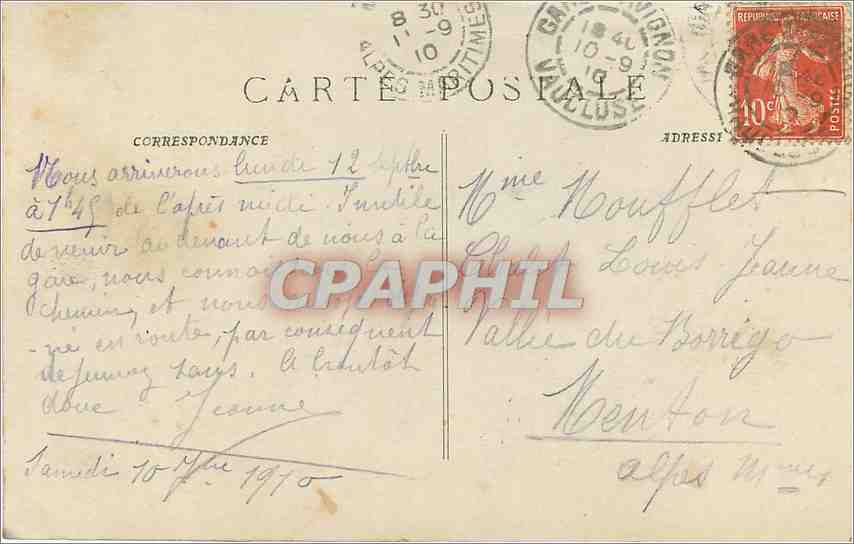 8 30
11-9
10
ALPES MARITIMES
GARE AVIGNON
18 40
10-9
10
VAUCLUSE
REPUBLIQUE FRANCAISE
10c
POSTES
CARTE POSTALE
CORRESPONDANCE
Nous arriverons lundi 12 Septbre
à 1h45 de l'après midi. Inutile
de venir au devant de nous à la
gare, nous
chemin, et nous
en route, par conséquent
déjeunez sans. A bientôt
donc Jeanne
Samedi 10 7bre 1910
ADRESSE
Mme Moufflet
Chalet Louis Jeanne
Vallée du Borrigo
Menton
Alpes Mmes
CPAPHIL